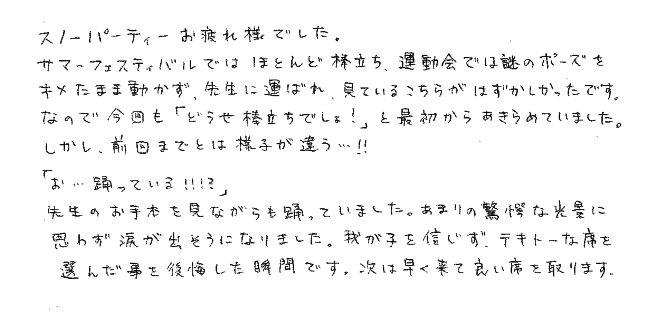 スノーパーティーお疲れ様でした。
サマーフェスティバルではほとんど棒立ち、運動会では謎のポーズを
キメたまま動かず、先生に運ばれ、見ているこちらがはずかしかったです。
なので今回も「どうせ棒立ちでしょ!」と最初からあきらめていました。
しかし、前回までとは様子が違う…!!
「お…踊っている!!!?」
先生のお手本を見ながらも踊っていました。あまりの驚愕な光景に
思わず涙が出そうになりました。我が子を信じず、テキトーな席を
選んだ事を後悔した瞬間です。次は早く来て良い席を取ります。